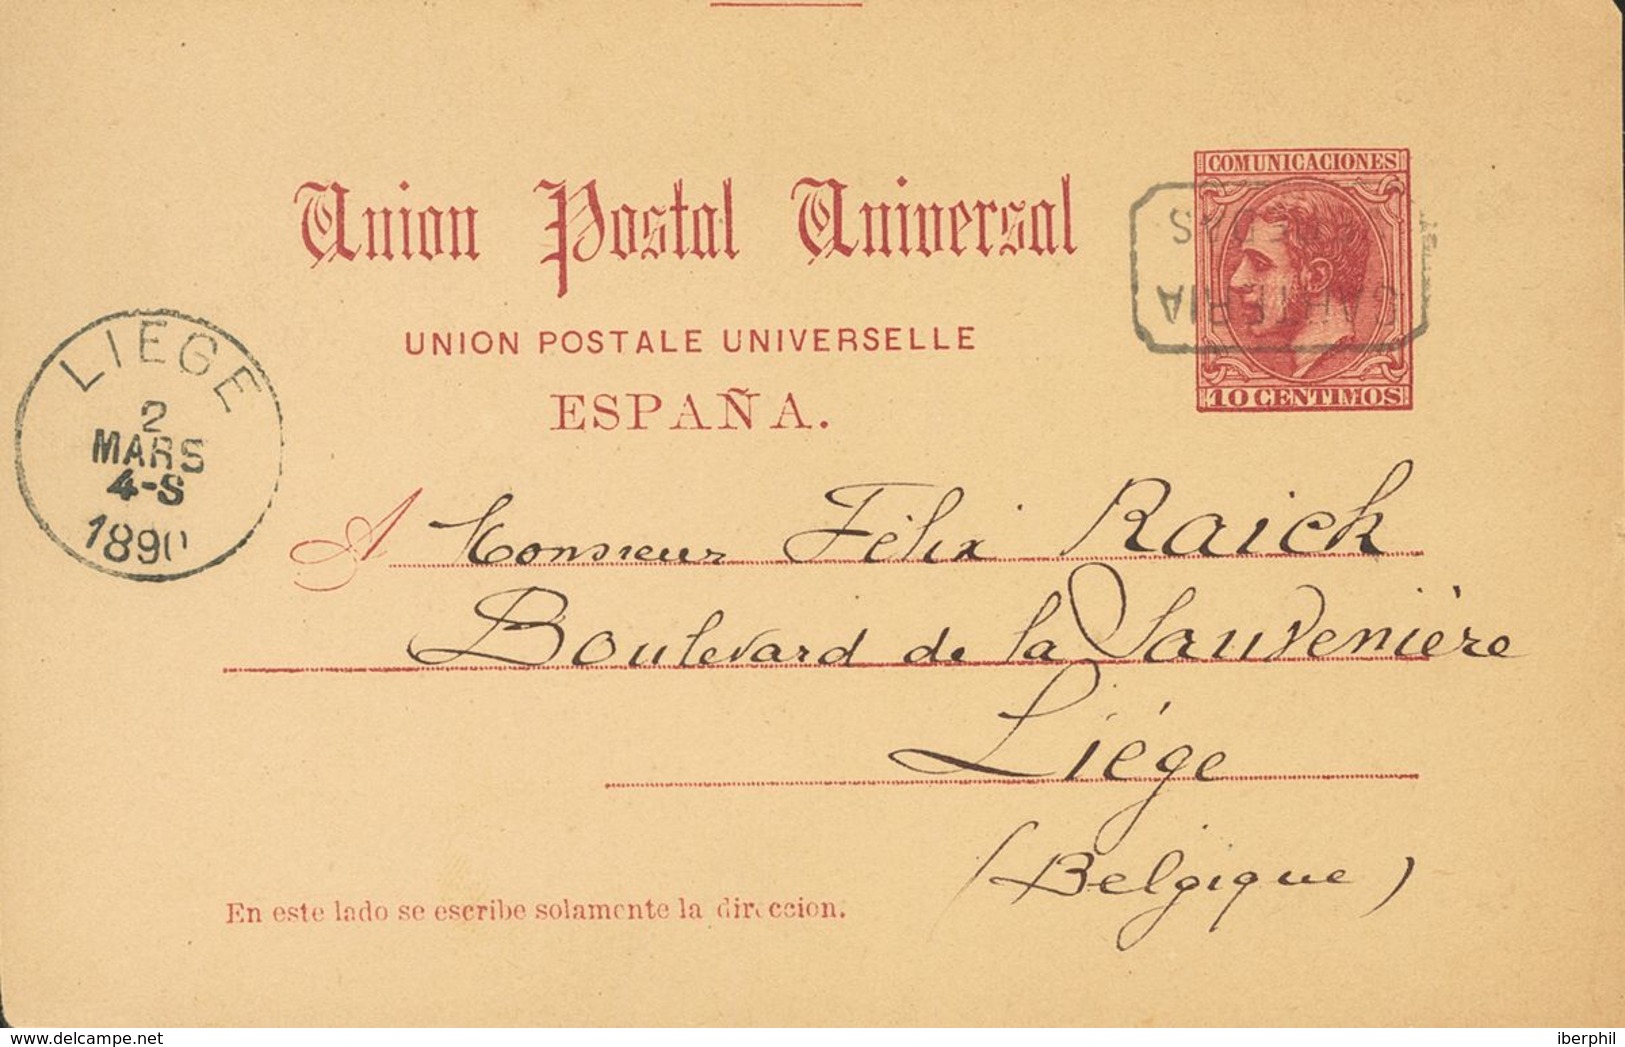 COMUNICACIONES
Union Postal Universal
CARTERIA
UNION POSTALE UNIVERSELLE
ESPAÑA.
10 CENTIMOS
LIEGE
2
MARS
4-S
1890
A Monsieur Félix Raick
Boulevard de la Sauvenière
Liége
(Belgique)
En este lado se escribe solamente la direccion.
delcampe.net
iberphil